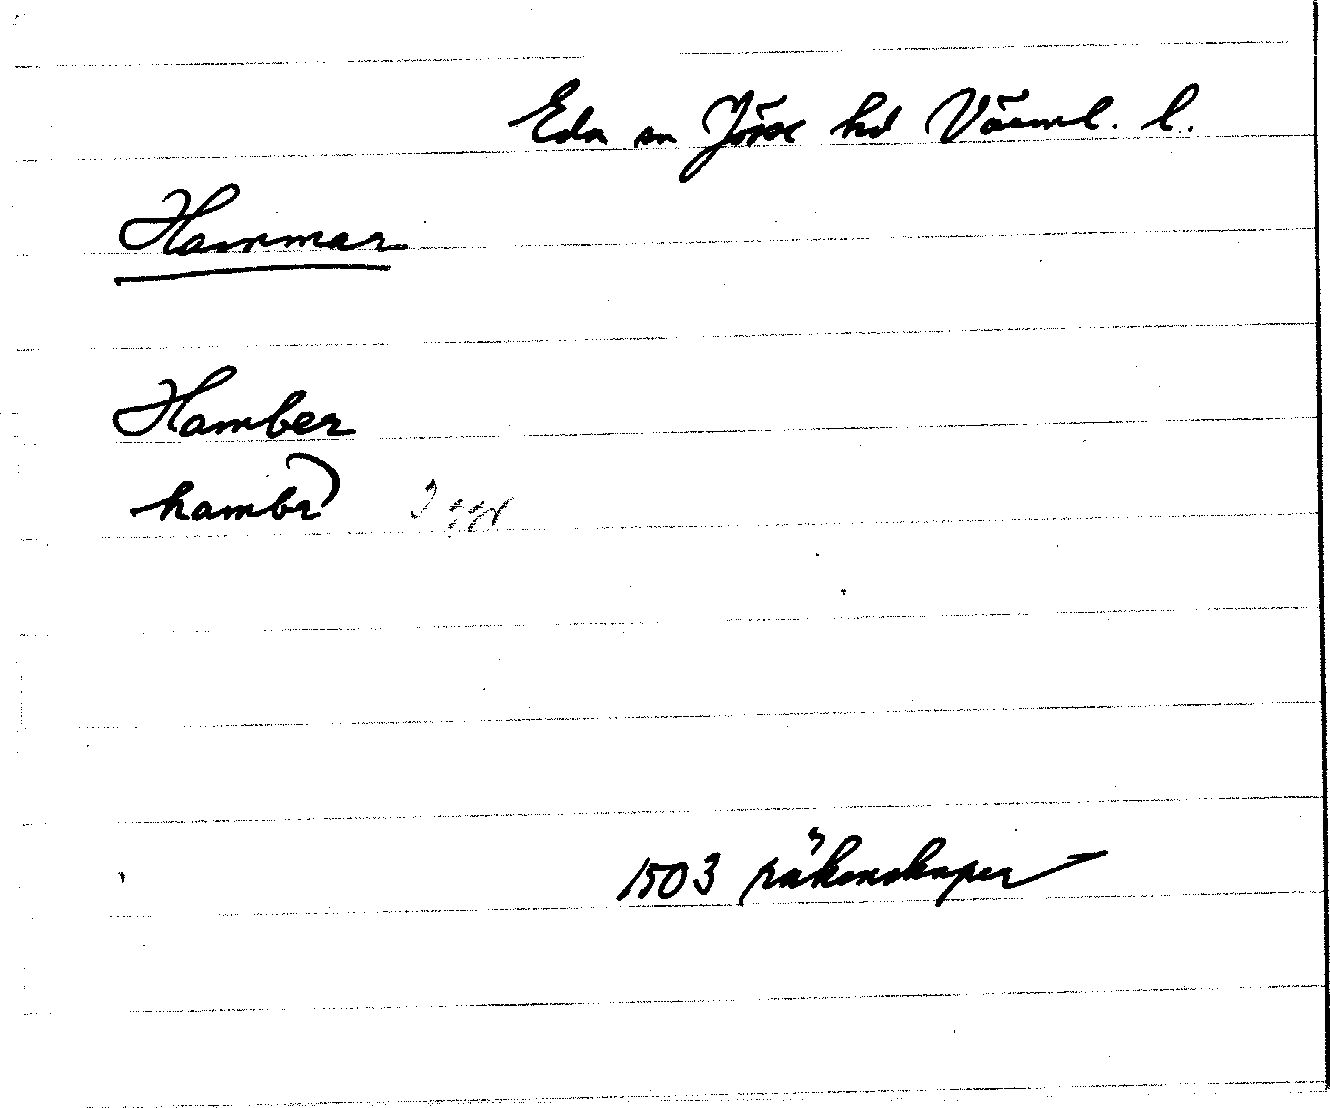 Eda sn Jösse hd Värml. l.
Hammar
Hamber
hambr
1503 räkenskaper